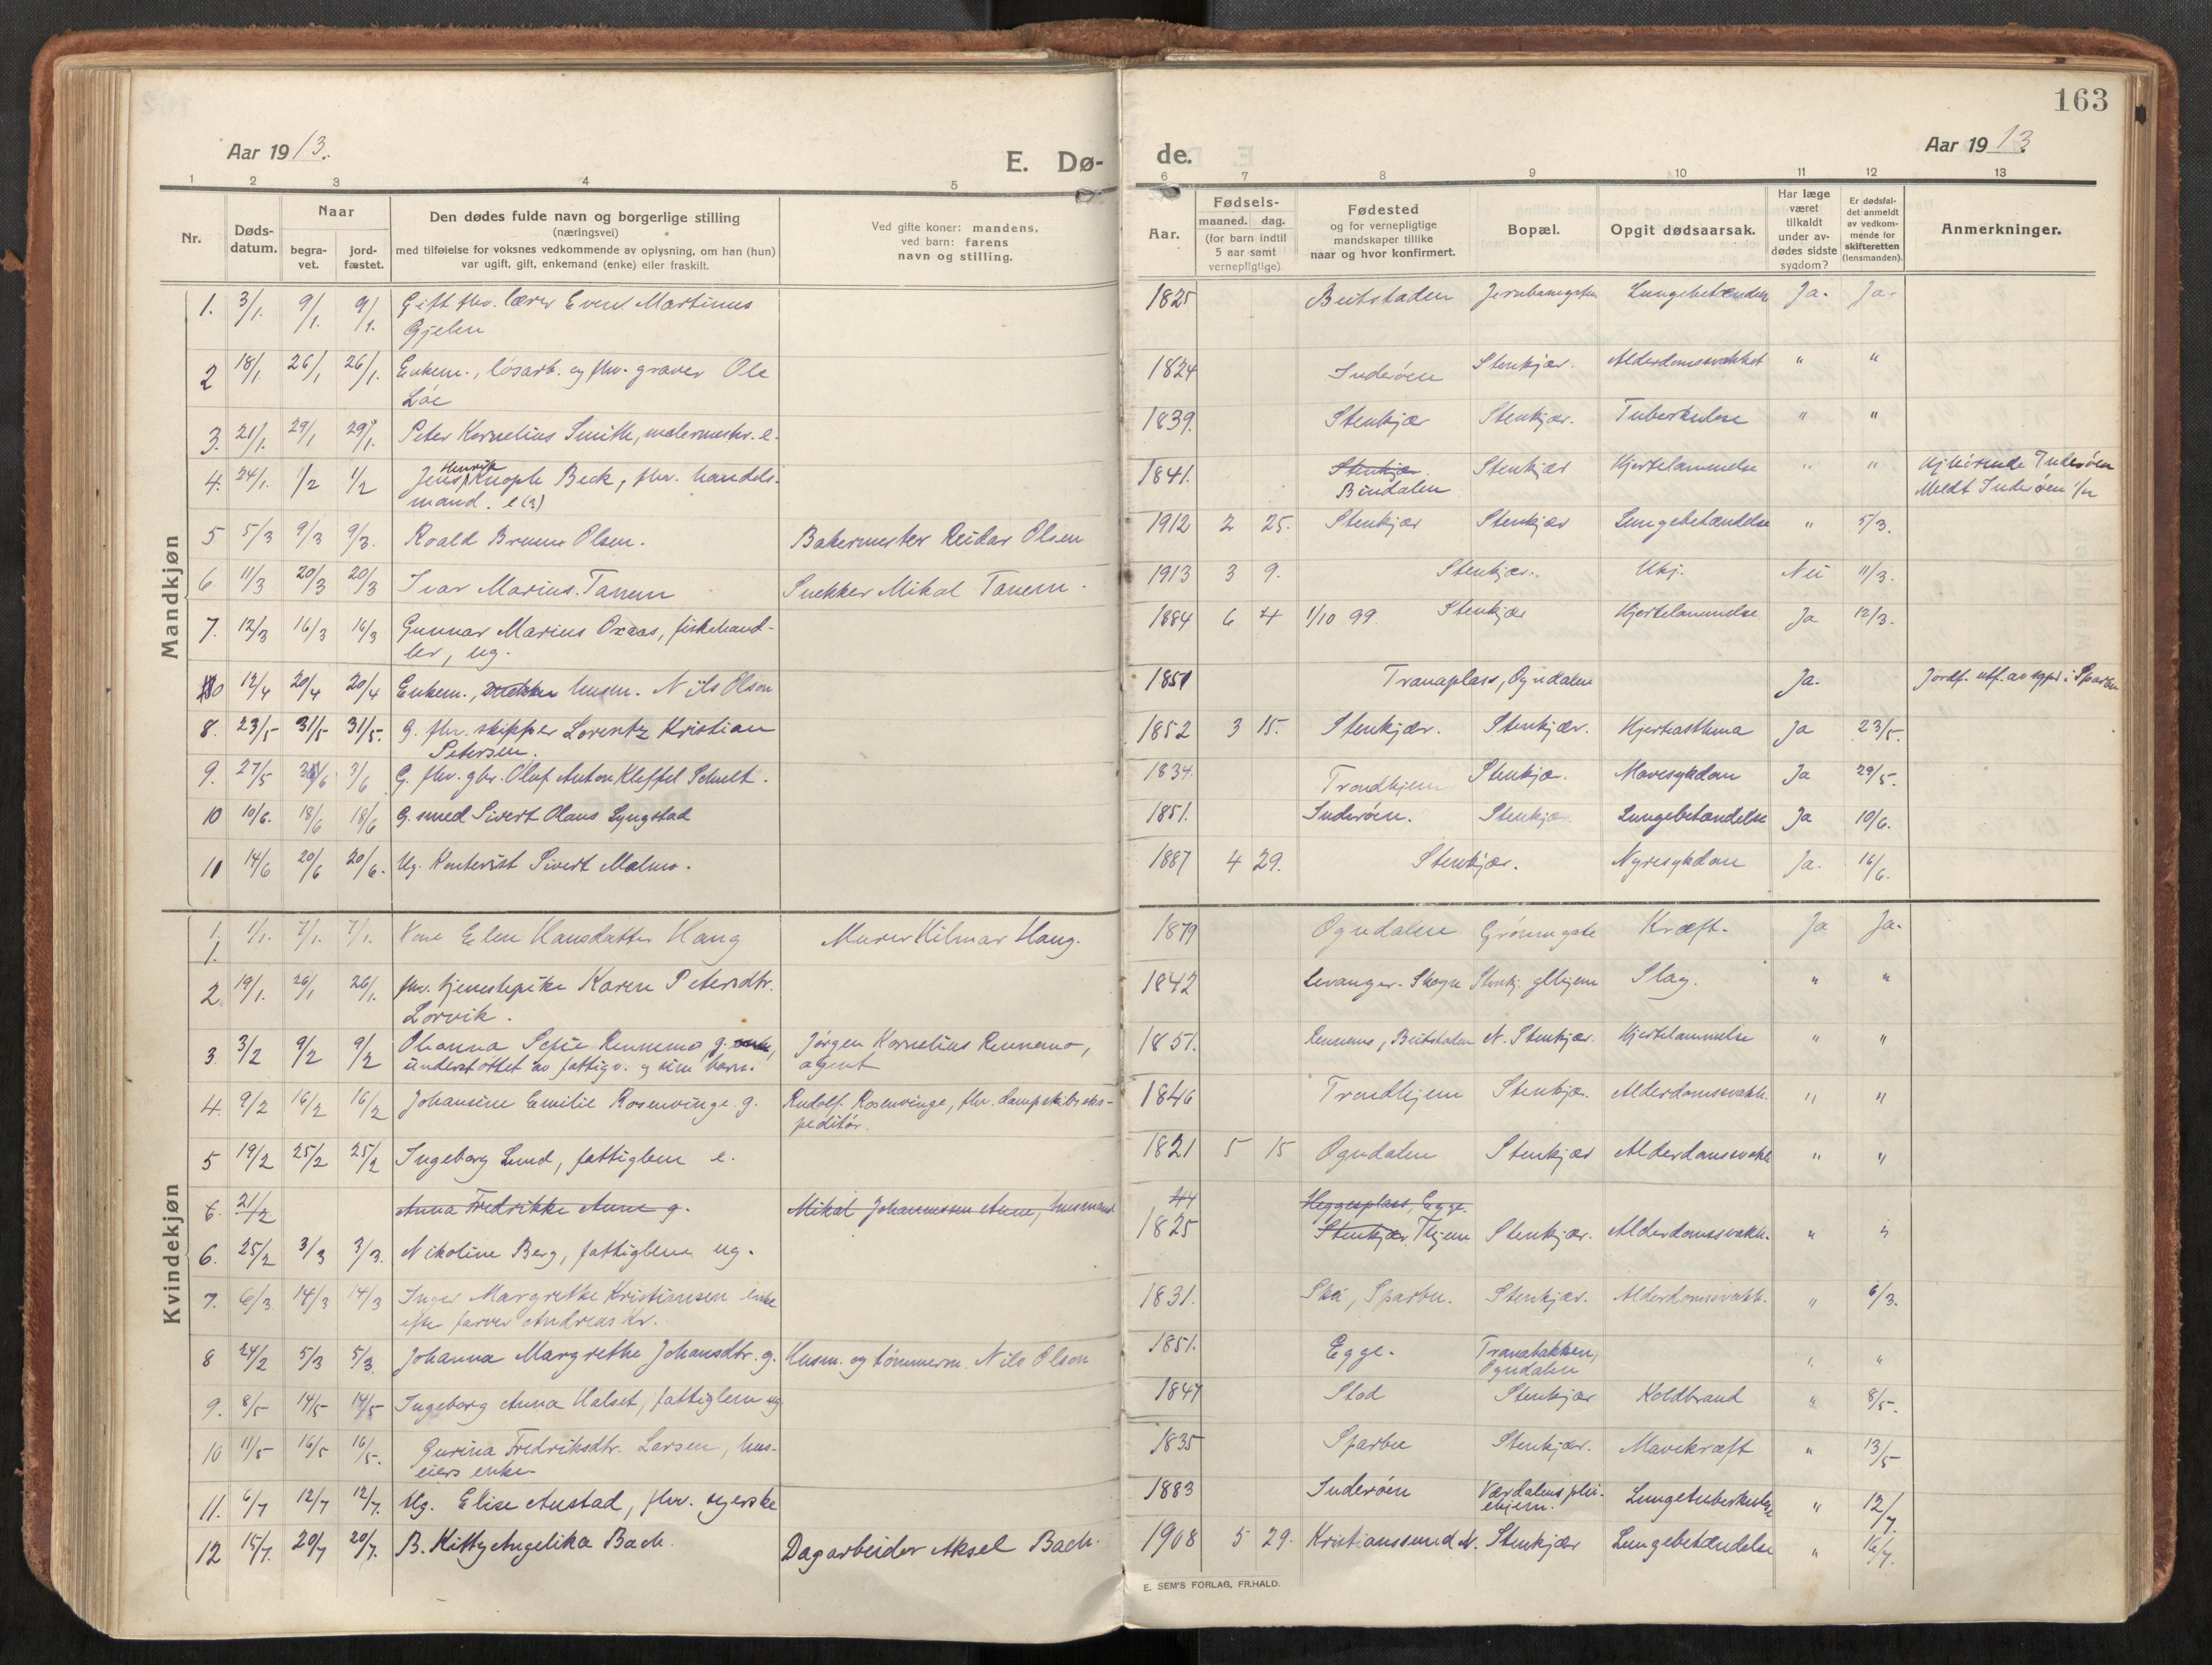 163
Aar 1913.
E. Dø-
de.
Aar 1913
1 2 3 4 5 6 7 8 9 10 11 12 13
Nr.
Døds-
datum.
Naar
begra-
vet.
jord-
fæstet.
Den dødes fulde navn og borgerlige stilling
(næringsvei)
med tilføielse for voksnes vedkommende av oplysning, om han (hun)
var ugift, gift, enkemand (enke) eller fraskilt.
Ved gifte koner: mandens,
ved barn: farens
navn og stilling.
Aar.
Fødsels-
maaned. dag.
(for barn indtil
5 aar samt
vernepligtige).
Fødested
og for vernepligtige
mandskaper tillike
naar og hvor konfirmert.
Bopæl.
Opgit dødsaarsak.
Har læge
været
tilkaldt
under av-
dødes sidste
sygdom?
Er dødsfal-
det anmeldt
av vedkom-
mende for
skifteretten
(lensmanden).
Anmerkninger.
Mandkjøn
1. 3/1. 9/1. 9/1. Gift fhv. lærer Even Martinus 1825 Beitstaden Jernbanegaten Lungebetændelse Ja. Ja.
Gjelen
2 18/1. 26/1 26/1. Enkem., løsarb. og fhv. graver Ole 1824 Inderøen Stenkjær. Alderdomssvakhet " "
Løe
3. 21/1. 29/1 29/1. Peter Kornelius Smith, malermester. e. 1839. Stenkjær Stenkjær. Tuberkulose " "
4. 24/1. 1/2 1/2 Jens Henrik Knoph Beck, fhv. handels- 1841. Stenkjær. Stenkjær Hjertelammelse " " Hjhørende Inderøen
mand. e (?) Bindalen Meldt Inderøen
5 5/3 9/3 9/3. Roald Bruun Olsen. Bakermester Reidar Olsen 1912 2 25. Stenkjær Stenkjær Lungebetændelse " 5/3.
6. 11/3 20/3 20/3 Ivar Marius Tanem Snekker Mikal Tanem. 1913 3 9. Stenkjær. Ukj. Nei 11/3.
7. 12/3 16/3 16/3 Gunnar Marius Oxaas, fiskehand- 1884 6 4 1/10 99. Stenkjær Hjertelammelse Ja 12/3.
ler, ug.
12/4 20/4 20/4 Enkem., husm. Nils Olsen 1851 Tranaplass, Ogndalen Ja. Jordf. utf. av sgpr i Sparbu
8. 23/5 31/5 31/5. G. fhv. skipper Lorentz Kristian 1852 3 15. Stenkjær. Stenkjær. Hjerteasthma Ja 23/5.
Petersen.
9. 27/5 3/6 3/6 G. fhv. gbr. Oluf Anton Kleffel Schult. 1834. Trondhjem Stenkjær. Mavesykdom Ja 29/5.
10 10/6. 18/6 18/6 G. smed Sivert Olaus Lyngstad 1851. Inderøen. Stenkjær Lungebetændelse Ja 10/6.
11 14/6 20/6 20/6. Ug. Kontorist Sivert Malmo. 1887 4 29. Stenkjær. Nyresykdom Ja. 16/6.
Kvindekjøn
1. 1/1. 7/1. 7/1. Kone Elen Hansdatter Haug Murer Hilmar Haug. 1879 Ogndalen Grønnegate Kræft. Ja Ja.
1.
2. 19/1. 26/1 26/1. fhv. tjenestepike Karen Petersdtr. 1842 Levanger-Skogn Stenkj. glhjem Slag. " "
Lorvik.
3 3/2 9/2 9/2 Ohanna Sofie Rennemo g. Jørgen Kornelius Rennemo, 1851. Rennemo, Beitstaden N. Stenkjær. Hjertelammelse " "
understøttet av fattigv. og sine barn. agent
4. 9/2 16/2 16/2 Johansine Emilie Rosenvinge. g. Rudolf Rosenvinge, fhv. dampskibseks- 1846 Trondhjem Stenkjær. Alderdomssvakh. " "
peditør.
5 19/2 25/2 25/2 Ingeborg Lund, fattiglem e. 1821 5 15 Ogndalen Stenkjær Alderdomssvakh " "
6. 21/2 Anna Fredrikke Aune g. Mikal Johannessen Aune, husmand 44 Heggesplass, Egge.
6. 25/2 3/3 3/3. Nikoline Berg, fattiglem ug. 1825 Stenkjær Thjem Stenkjær. Alderdomssvakh. " "
7. 6/3 14/3 14/3 Inger Margrethe Kristiansen enke 1831. Ska, Sparbu. Stenkjær. Alderdomssvakh. " 6/3.
efter farver Andreas Kr.
8 24/2 5/3 5/3. Johanna Margrethe Johansdtr. g. Husm. og tømmerm. Nils Olson 1851. Egge. Tranabakken, " "
Ogndalen
9. 8/5 14/5 14/5 Ingeborg Anna Halset, fattiglem ug 1847 Stod Stenkjær Koldbrand " 8/5.
10 11/5 16/5 16/5. Gurina Fredriksdtr. Larsen, hus- 1835 Sparbu Stenkjær. Mavekræft " 13/5
eiers enke.
11. 6/7 12/7 12/7. Ug. Elise Austad, fhv. syerske 1883 Inderøen Værdalens plei- Lungetuberkulose " 12/7.
ehjem.
12 15/7. 20/7 20/7. B. Kitty Angelika Bach. Dagarbeider Aksel Bach. 1908 5 29. Kristianssund N. Stenkjær Lungebetændelse " 16/7.
E. SEM'S FORLAG, FR.HALD.